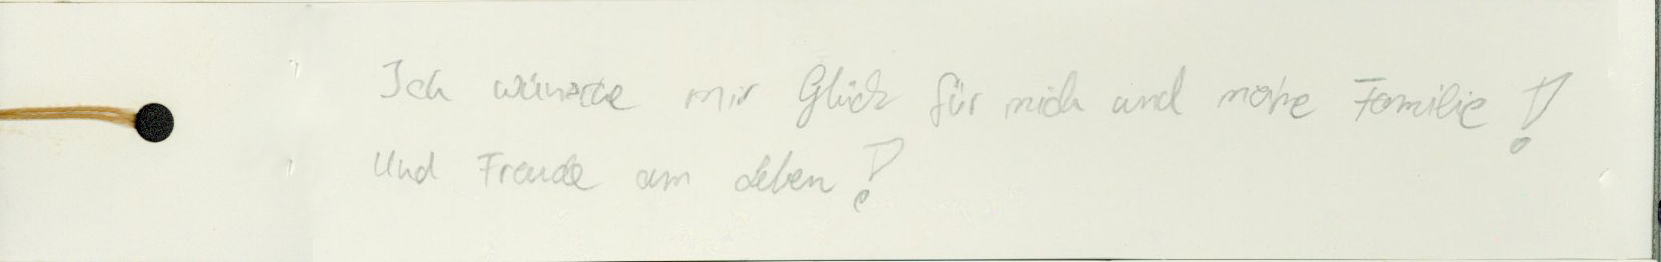 Ich wünsche mir Glück für mich und meine Familie!
Und Freude am Leben!